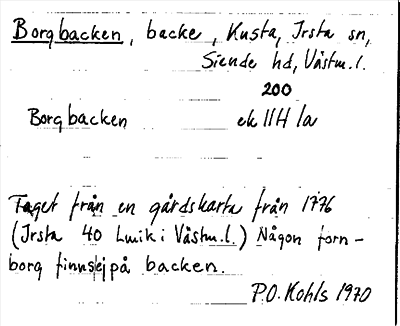 Borgbacken, backe, Kusta, Irsta sn,
Siende hd, Västm.l.
200
Borgbacken ek 11H 1a
Taget från en gårdskarta från 1776
(Irsta 40 Lmik i Västm.l.) Någon forn-
borg finns ej på backen.
P.O. Kohls 1970